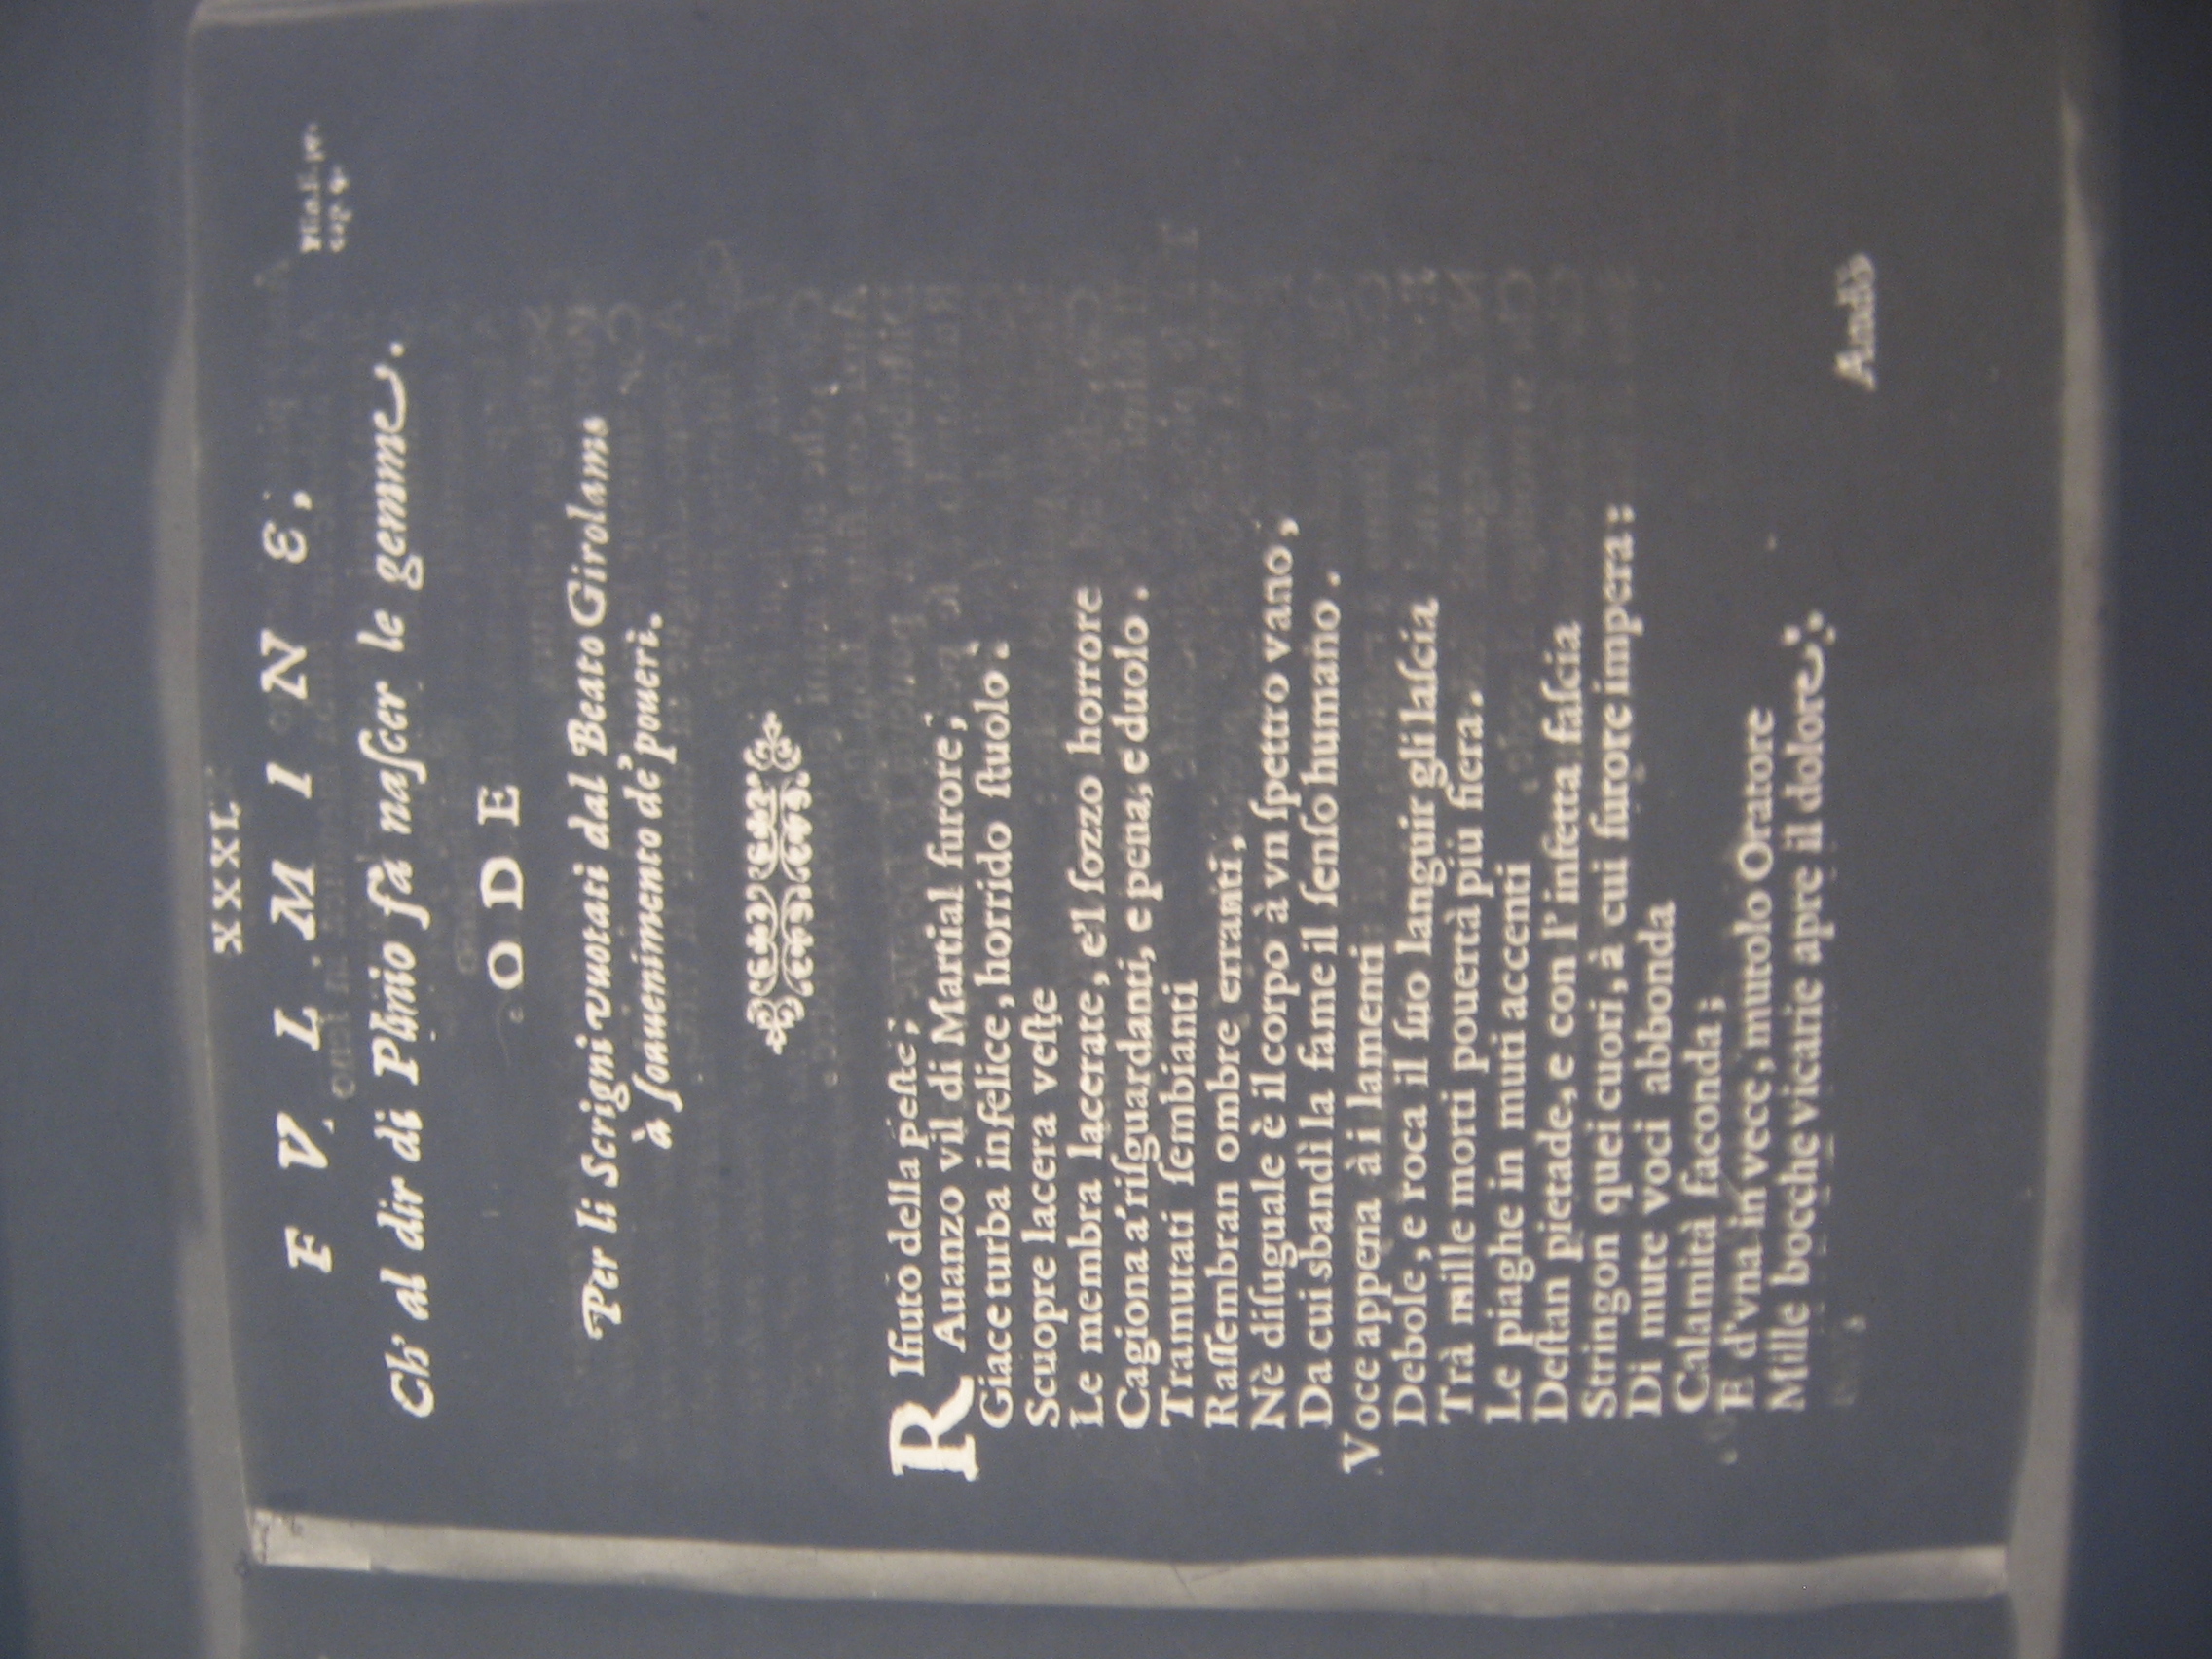 XXXI.
FVLMINE,
Plin. l. 37.
cap. 9.
Ch' al dir di Plinio fà naſcer le gemme.
ODE
Per li Scrigni vuotati dal Beato Girolamo
à ſouuenimento de' poueri.
RIfiuto della peſte;
Auanzo vil di Martial furore;
Giace turba infelice, horrido ſtuolo:
Scuopre lacera veſte
Le membra lacerate, e'l ſozzo horrore
Cagiona a' riſguardanti, e pena, e duolo.
Tramutati ſembianti
Raſſembran ombre erranti,
Nè diſuguale è il corpo à vn ſpettro vano,
Da cui sbandì la fame il ſenſo humano.
Voce appena à i lamenti
Debole, e roca il ſuo languir gli laſcia
Trà mille morti pouertà più fiera.
Le piaghe in muti accenti
Deſtan pietade, e con l' infetta faſcia
Stringon quei cuori, à cui furore impera:
Di mute voci abbonda
Calamità faconda;
E d'vna in vece, mutolo Oratore
Mille bocche vicarie apre il dolore.